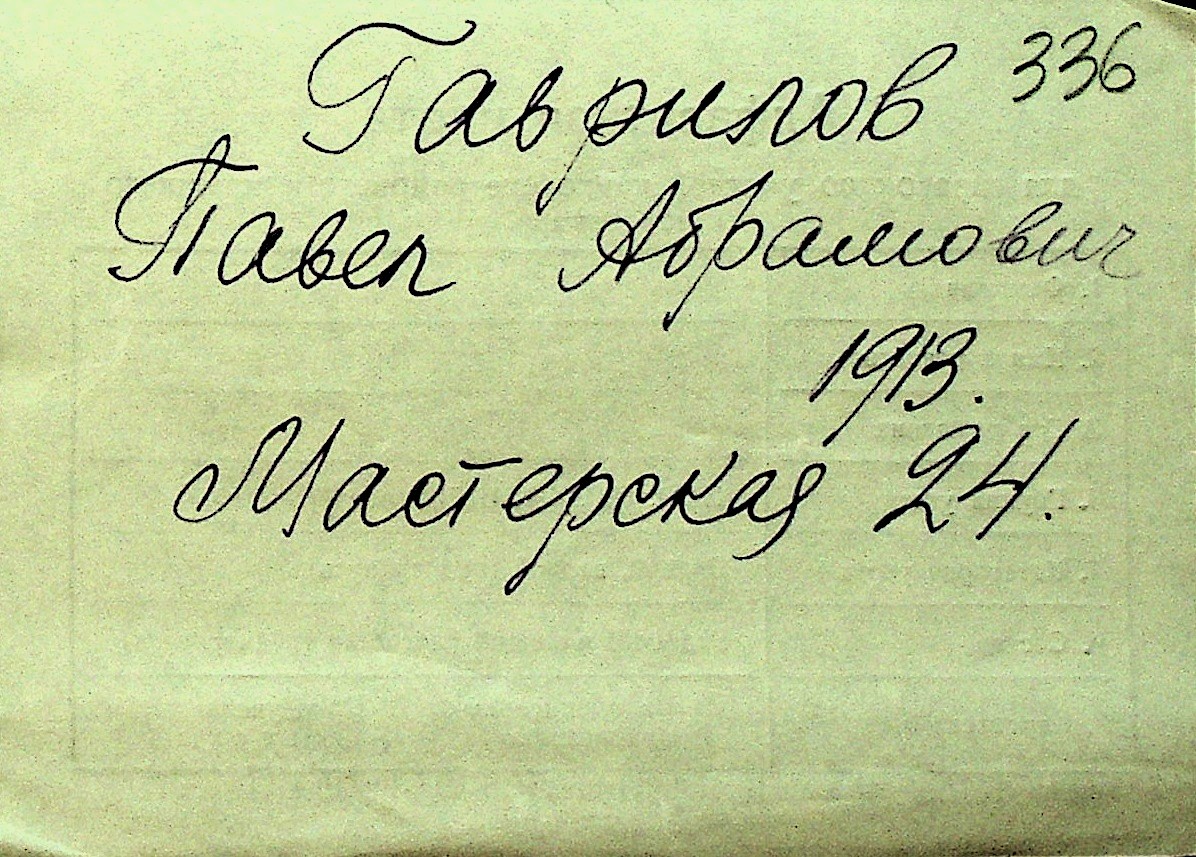 Гаврилов 336
Павел Абрамович
1913.
Мастерская 24.